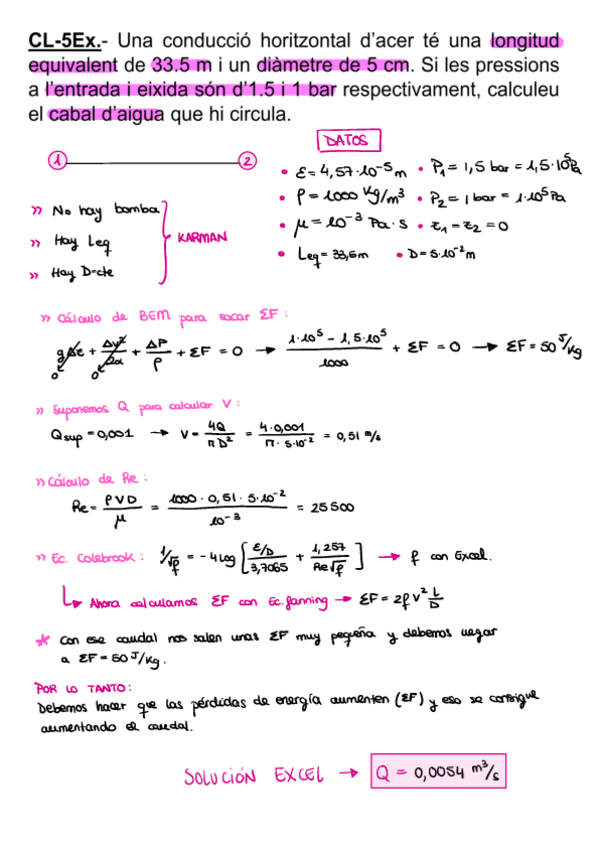 CL-5Ex.- Una conducció horitzontal d'acer té una longitud
equivalent de 33.5 m i un diàmetre de 5 cm. Si les pressions
a l'entrada i eixida són d'1.5 i 1 bar respectivament, calculeu
el cabal d'aigua que hi circula.
DATOS
1 2
• ε = 4,57·10⁻⁵ m • P₁ = 1,5 bar = 1,5·10⁵ Pa
» No hay bomba
• ρ = 1000 kg/m³ • P₂ = 1 bar = 1·10⁵ Pa
» Hay Leq KARMAN
• μ = 10⁻³ Pa·s • z₁ = z₂ = 0
» Hay D=cte
• Leq = 33,5m • D = 5·10⁻² m
» Cálculo de BEM para sacar ΣF :
gΔz + Δv²/2α + ΔP/ρ + ΣF = 0 → (1·10⁵ - 1,5·10⁵)/1000 + ΣF = 0 → ΣF = 50 J/kg
0 0
» Suponemos Q para calcular V :
Qsup = 0,001 → V = 4Q/πD² = 4·0,001/π·5·10⁻² = 0,51 m/s
» Cálculo de Re :
Re = ρVD/μ = 1000·0,51·5·10⁻²/10⁻³ = 25500
» Ec. Colebrook : 1/√f = -4 log [ (ε/D)/3,7065 + 1,257/Re√f ] → f con Excel.
↳ Ahora calculamos ΣF con Ec. fanning → ΣF = 2fV² L/D
* Con ese caudal nos salen unas ΣF muy pequeña y debemos llegar
a ΣF = 50 J/kg.
POR LO TANTO:
Debemos hacer que las pérdidas de energía aumenten (ΣF) y eso se consigue
aumentando el caudal.
SOLUCIÓN EXCEL → Q = 0,0054 m³/s